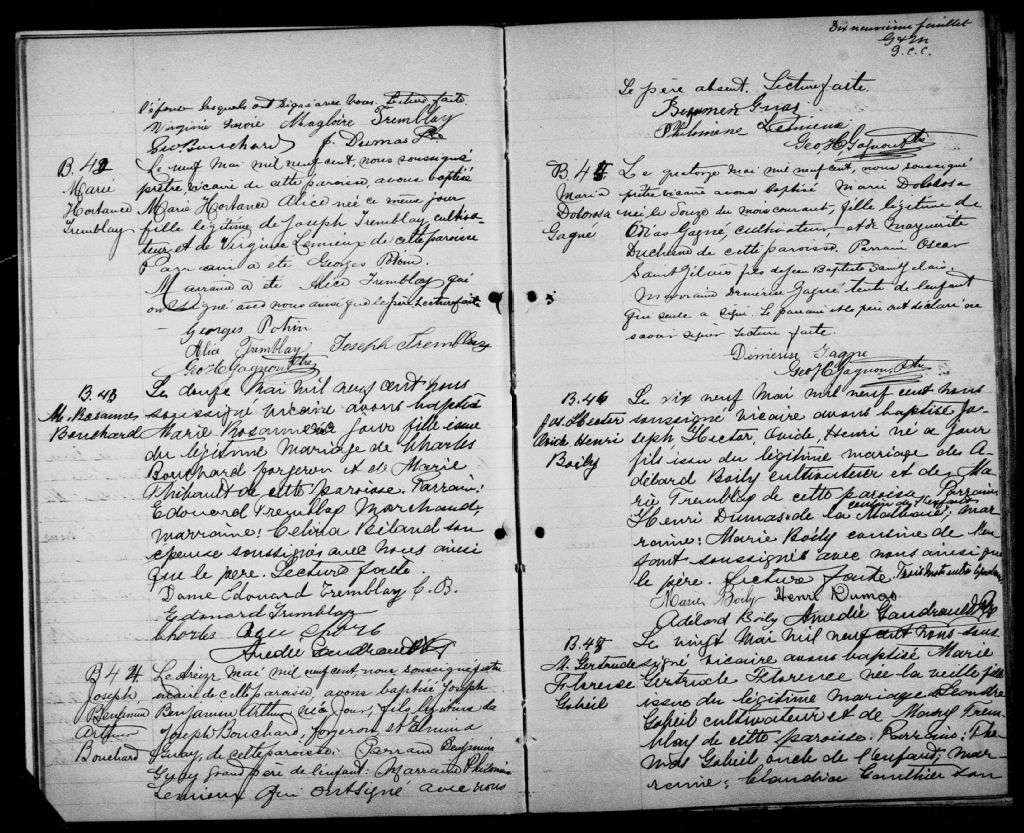 l'épouse lesquels ont signé avec nous. Lecture faite.
Virginie Savoie Magloire Tremblay
Geo Bouchard J. Dumas Ptre
B. 42
Marie
Hortance
Tremblay
Le neuf mai mil neuf cent, nous soussigné
prêtre vicaire de cette paroisse, avons baptisé
Marie Hortance Alice née ce même jour
fille légitime de Joseph Tremblay, cultiva-
teur, et de Virginie Lemieux de cette paroisse
Parrain a été Georges Potvin.
Marraine a été Alice Tremblay qui
ont signé avec nous ainsi que le père. Lecture faite
Georges Potvin
Alice Tremblay Joseph Tremblay
Geo H Gagnon Ptre
B. 43
M. Rosanna
Bouchard
Le douze Mai mil neuf cent nous
soussigné vicaire avons baptisé
Marie Rosanna née ce jour fille issue
du légitime mariage de Charles
Bouchard forgeron et de Marie
Thibault de cette paroisse. Parrain:
Edouard Tremblay Marchand,
marraine: Celina Béland son
épouse soussignés avec nous ainsi
que le père. Lecture faite.
Dame Edouard Tremblay C. B.
Edmard Tremblay
Charles
Amédée Gaudreault Ptre
B 44
Joseph
Benjamin
Arthur
Bouchard
Le treize mai mil neuf cent, nous soussigné prêtre
vicaire de cette paroisse, avons baptisé Joseph
Benjamin Arthur né ce jour, fils légitime de
Joseph Bouchard, forgeron, et Elmina
Guay, de cette paroisse. Parrain Benjamin
Guay grand père de l'enfant. Marraine Philomène
Lemieux qui ont signé avec nous
Dix neuvième feuillet
G & M
G. C. C.
Le père absent. Lecture faite.
Philomene Lemieux
Geo H Gagnon Ptre
B 45
Maria
Dolorosa
Gagné
Le quatorze mai mil neuf cent, nous soussigné
prêtre vicaire avons baptisé Marie Dolorosa
née le douze du mois courant, fille légitime de
Onias Gagné, cultivateur, et de Marguerite
Duchesne de cette paroisse. Parrain Oscar
Saint Gelais fils de Jean Baptiste Saint Gelais
Marraine Démérise Gagné tante de l'enfant
qui seule a signé. Le parrain et le père ont déclaré ne
savoir signer. Lecture faite.
Démérise Gagné
Geo H Gagnon, Ptre
B. 46
Jos. Hector
Ovide Henri
Boily
Le dix neuf Mai mil neuf cent nous
soussigné vicaire avons baptisé Jo-
seph Hector, Ovide, Henri né ce jour
fils issu du légitime mariage de A-
délard Boily cultivateur et de Ma-
rie Tremblay de cette paroisse Parrain:
cousin de l'enfant
Henri Dumas de la Malbaie; mar-
raine: Marie Boily cousine de l'en
fant soussignés avec nous ainsi que
le père. Lecture faite. Trois mots entre
Marie Boily Henri Dumas.
Adélard Boily Amédée Gaudreault Ptre
B. 47
M. Gertrude
Florence
Gobeil
Le vingt Mai mil neuf cent nous sous
signé vicaire avons baptisé Marie
Gertrude Florence née la veille fille
issue du légitime mariage Léandre
Gobeil cultivateur et de Mary Trem-
blay de cette paroisse. Parrain: Tho
mas Gobeil oncle de l'enfant, mar-
raine: Claudia Gauthier son